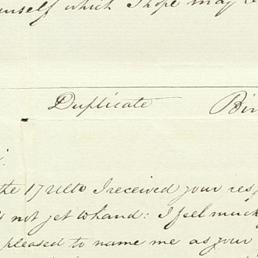 which I hope may
Duplicate
the 17 Ulto I received your
not yet to hand: I feel much
pleased to name me as your